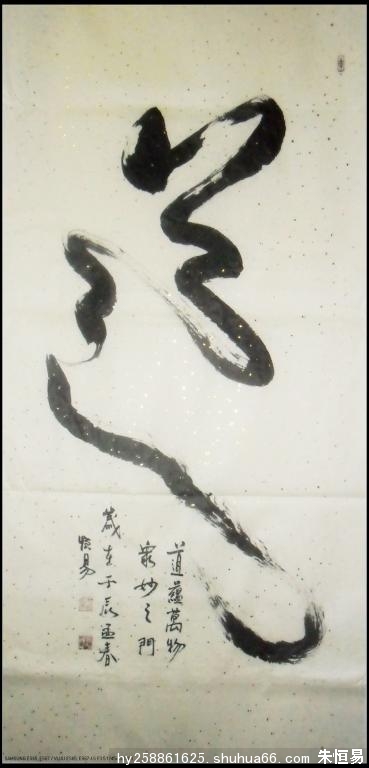 道
道蘊萬物
衆妙之門
歲在壬辰孟春
恒易
hy258861625.shuhua66.com 朱恒易